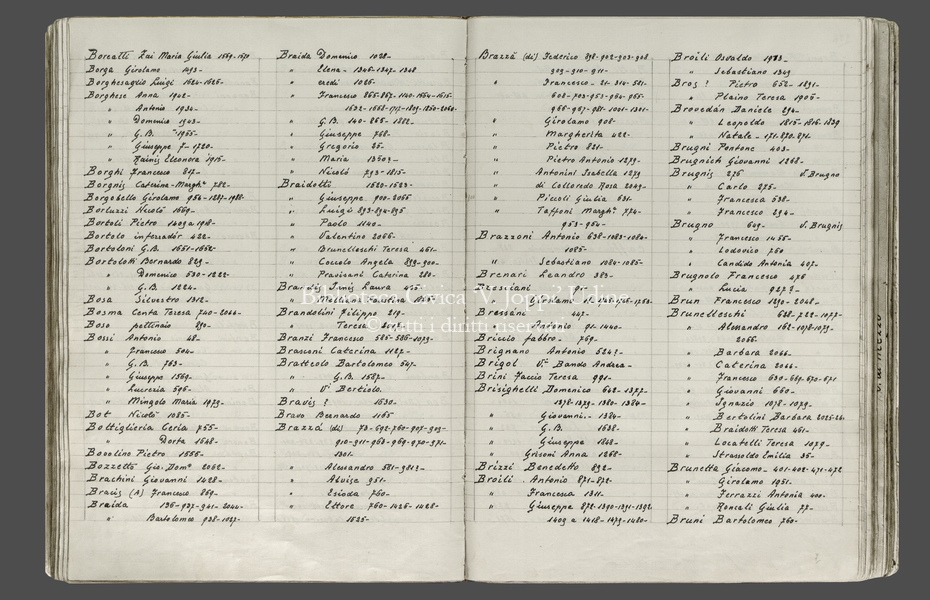 Borcatti Zai Maria Giulia 1569-1570
Borga Girolamo 1493-
Borghesaglio Luigi 1624-1626-
Borghese Anna 1942-
" Antonio 1934-
" Domenico 1943-
" G.B. 1955-
" Giuseppe 7-1720-
" Rainis Eleonora 1915-
Borghi Francesco 847-
Borgnis Caterina-Margh.ª 782-
Borgobello Girolamo 954-1287-1988-
Borluzzi Nicolò 1669-
Bortoli Pietro 1409 a 1918-
Bortolo intersiador 422-
Bortoloni G.B. 1651-1652-
Bortolotti Bernardo 829-
" Domenico 530-1222-
" G.B. 1224-
Bosa Silvestro 1312-
Bosma Centa Teresa 740-2044-
Boso pettinaio 890-
Bossi Antonio 48-
" Francesco 504-
" G.B. 763-
" Giuseppe 1569-
" Lucrezia 596-
" Mingolo Maria 1979-
Bot Nicolò 1085-
Bottiglieria Ceria 755-
" Dorta 1648-
Bovolino Pietro 1555-
Bozzetti Gio. Dom.º 2062-
Brachini Giovanni 1428-
Bracis (A) Francesco 869-
Braida 136-927-941-2044-
" Bartolomeo 938-1027-
Braida Domenico 1028-
" Elena-1346-1347-1348
" eredi 1026-
" Francesco 865-867-1140-1554-1615-
1632-1668-1717-1839-1850-2060-
" G.B. 140-865-1382-
" Giuseppe 768-
" Gregorio 25-
" Maria 1350?-
" Nicolò 793-1815-
Braidotti 1520-1523-
" Giuseppe 900-2065
" Luigi 893-894-895
" Paolo 1140-
" Valentino 2066-
" Brunelleschi Teresa 461-
" Coccolo Angela 899-900-
" Pravisani Caterina 280-
Brandis Junis Laura 425-
" Mantica Catarina
Brandolini Filippo 219-
" Teresa
Branzi Francesco 585-586-1079-
Brasconi Caterina 1127-
Brattolo Bartolomeo 547-
" G.B. 1587-
" V. Bertiolo
Bravis ? 1530-
Bravo Bernardo 1165
Brazzà (di) 73-692-760-907-909-
910-911-968-969-970-971-
1301-
" Alessandro 581-981?-
" Alvise 951-
" Esioda 760-
" Ettore 760-1426-1428-
1535-
Brazzà (di) Federico 898-902-903-908
909-910-911-
" Francesco-21-314-581-
608-703-953-964-965-
966-967-981-1001-1301-
" Girolamo 908-
" Margherita 422-
" Pietro 821-
" Pietro Antonio 1279-
" Antonini Isabella 1279
" di Colloredo Rosa 2049-
" Piccoli Giulia 631-
" Taffoni Margh.ª 774-
953-964-
Brazzoni Antonio 638-1083-1084-
1085-
" Sebastiano 1084-1085-
Brenari Leandro 383-
Bresciani 91-
" Girolamo
Bressani 447-
" Antonio 91-1440-
Briccio fabbro- 769-
Brignano Antonio 524?-
Brigot V. Bando Andrea-
Brini Faccio Teresa 991-
Brisighelli Domenico 642-1377-
1378-1379-1380-1384-
" Giovanni-1384-
" G.B. 1638-
" Giuseppe 1868-
" Grisoni Anna 1268-
Brizzi Benedetto 892-
Broili Antonio 871-872-
" Francesca 1311-
" Giuseppe 872-1390-1391-1392
1409 a 1418-1479-1480-
Broili Osvaldo 1983-
" Sebastiano 1349
Bros ? Pietro 652-1891-
" Plaino Teresa 1905-
Brovedàn Daniele 294-
" Leopoldo 1815-1816-1839
" Natale-171-870-871-
Brugni Pontone 403-
Brugnich Giovanni 1268-
Brugnis 276 V. Brugno
" Carlo 275-
" Francesca 538-
" Francesco 294-
Brugno 609- V. Brugnis
" Francesco 1455-
" Lodovico 760-
" Candido Antonia 407-
Brugnolo Francesco 476
" Lucia 927?-
Brun Francesco 1890-2048-
Brunelleschi 638-722-1077-
" Alessandro 162-1078-1079-
2066-
" Barbara 2066-
" Caterina 2066-
" Francesco 630-669-670-671
" Giovanni 660-
" Ignazio 1078-1079-
" Bertolini Barbara 2025-26-
" Braidotti Teresa 461-
" Locatelli Teresa 1079-
" Strassoldo Emilia 35-
Brunetta Giacomo-401-402-471-472
" Girolamo 1951-
" Ferrazzi Antonia 400-
" Roncali Giulia 77-
Bruni Bartolomeo 760-
Biblioteca Civica 'V. Joppi' Udine
© tutti i diritti riservati